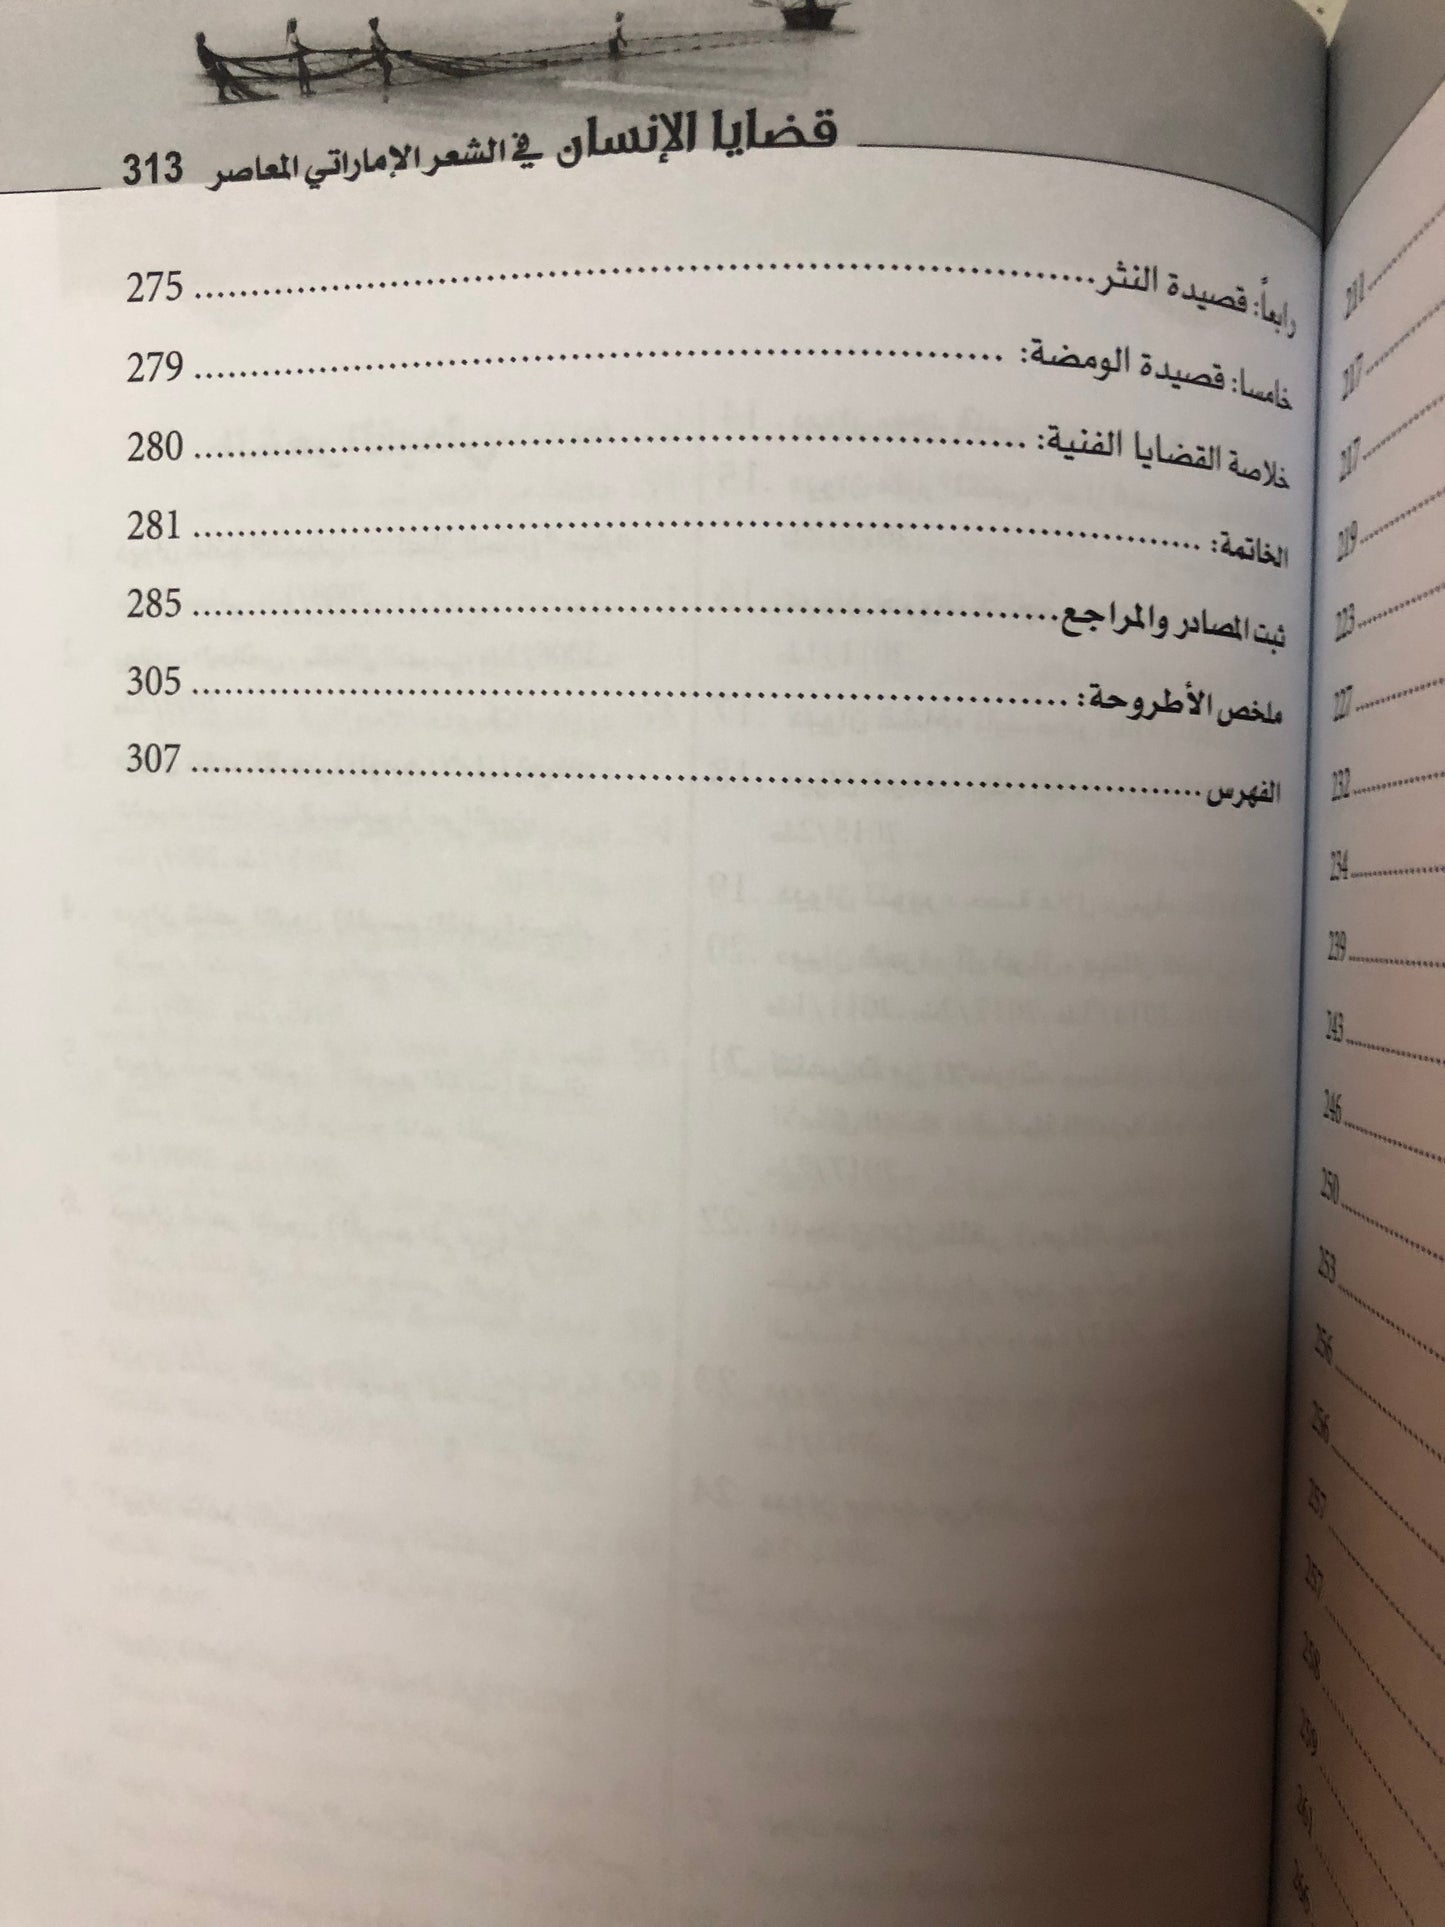 قضايا الإنسان في الشعر الإماراتي المعاصر 313
رابعاً: قصيدة النثر........................................ 275
خامسا: قصيدة الومضة: ........................................ 279
خلاصة القضايا الفنية: ........................................ 280
الخاتمة: ........................................ 281
ثبت المصادر والمراجع........................................ 285
ملخص الأطروحة: ........................................ 305
الفهرس........................................ 307
217
217
219
223
227
232
234
239
243
246
250
253
256
256
257
257
258